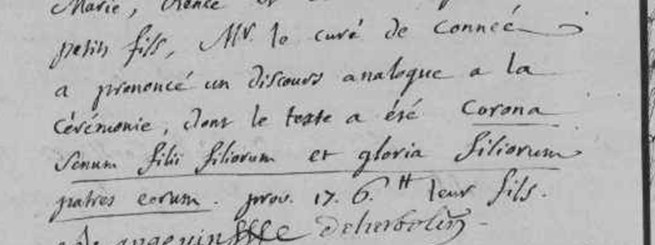 Marie, et
petits fils, Mr. le curé de Conneé
a prononcé un discours analogue a la
Cérémonie, dont le texte a été Corona
Senum filii filiorum et gloria filiorum
patres eorum. prov. 17. 6. # leur fils.